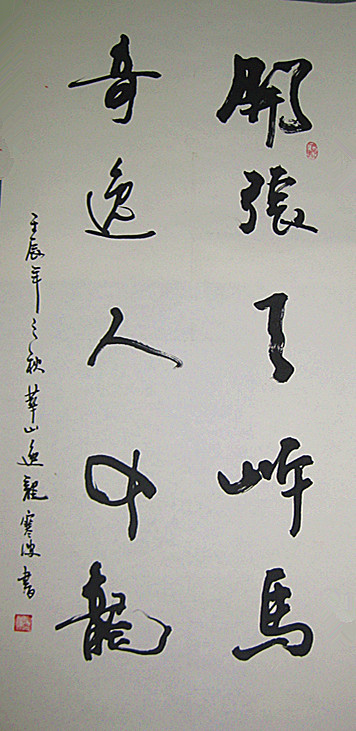 開張天岸馬
奇逸人中龍
壬辰年之秋華山逸龍寒波書